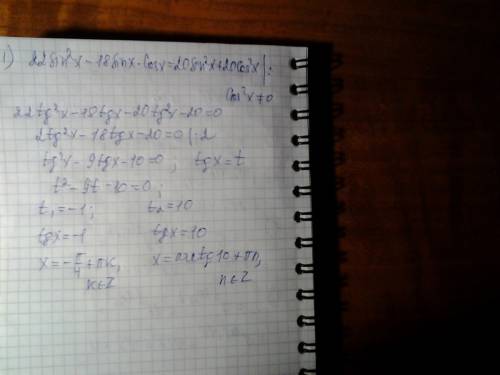 1) 22sin²x-18sinx·cosx=20sin²x+20cos²x|:
cos²x≠0
22tg²x-18tgx-20tg²x-20=0
2tg²x-18tgx-20=0|:2
tg²x-9tgx-10=0; tgx=t
t²-9t-10=0;
t₁=-1; t₂=10
tgx=-1 tgx=10
x=-π/4+πk, x=arctg10+πn,
k∈Z n∈Z